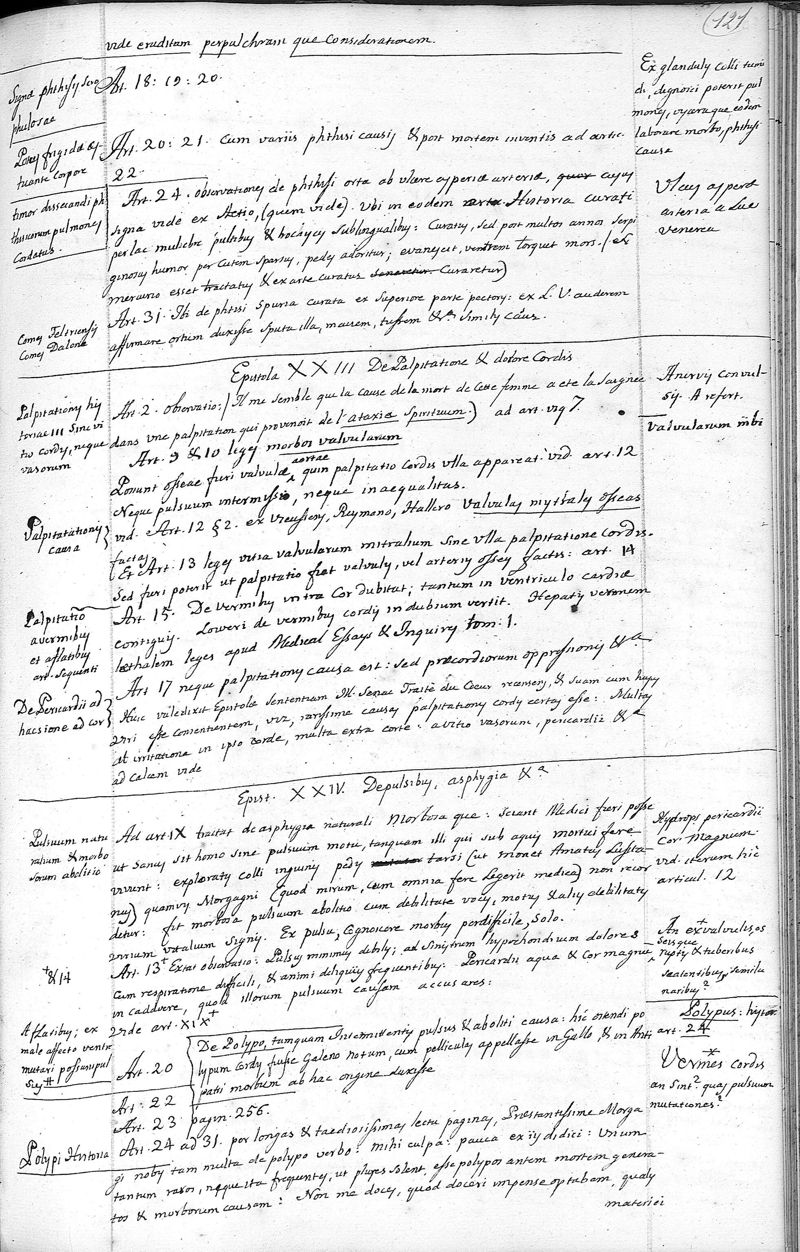 121
vide eruditam perpulchram que considerationem.
Signa phthiseos scro
phulosae
Art. 18: 19: 20.
Ex glandulis colli tumi
dis, dignosci poterit pul
mones, viscera que eodem
laborare morbo, phthisis
causa
frigidae
tuante corpore
Art. 20: 21. Cum variis phthisis causis & post mortem inventis ad artic.
22.
timor dissecandi ph
thisicorum pulmones
Cordatus.
Art. 24. observationes de phthisi orta ab ulcere asperae arteriae, cujus
signa vide ex Aetio, (quem vide). Ubi in eodem Historia curati
per lac muliebre pultibus & Sublingualibus: Curatus, sed post multos annos serpi
ginosus humor per Cutem sparsus, pedes adoritur; evanescit, ventrem torquet mors. (ex
mercurio esset tractatus & ex arte curatus curaretur)
Ulcus asperae
arteria a Lue
venerea
Comes Feltriensis
Comes
Art. 31. de phtisi spuria curata ex superiore parte pectoris: ex L. V. auderem
affirmare ortum duxisse sputa illa, maciem, tussem &c. simili causa.
Epistola XXIII De Palpitatione & dolore Cordis
Palpitationis hys
tericae III sine vi
tio cordis, neque
vasorum
Art. 2. observatio: (Il me semble que la cause de la mort de cette femme a ete la saignee
dans une palpitation qui provenoit de l'ataxia Spirituum.) ad art. usq 7.
A nervis convul
sis. A refert.
valvularum mbi
Art. 9 & 10 leges morbos valvularum
aortae
Possunt osseae fieri valvulae, quin palpitatio cordis ulla appareat: vid. art. 12
Neque pulsuum intermissio, neque inaequalitas.
Palpitationis
causa
vid. Art. 12 § 2. ex Vieussens, Reymano, Hallero valvulas mytrales osseas
factas
Et Art. 13 leges vitia valvularum mitralium sine ulla palpitatione Cordis.
Sed fieri poterit ut palpitatio fiat valvulis, vel arteriis osseis factis: art. 14
Palpitatio
a vermibus
et a flatibus
art. sequenti
Art. 15. De vermibus intra Cor dubitat; tantum in ventriculo cardiae
contiguis. Loweri de vermibus cordis in dubium vertit. Hepatis vermem
lethalem leges apud Medical Essays & Inquiry tom: 1.
De Pericardii ad
haesione ad cor
Art. 17 neque palpitationis causa est: sed praecordiorum oppressionis &a
Huic valedixit Epistolae sententiam M. Senac Traité du Coeur recensens, & suam cum hujus
viri esse consentientem, viz, rarissime causas palpitationis cordis certas esse: Multas
ab irritatione in ipso corde, multa extra corte: a vitio vasorum, pericardii &a
ad calcem vide
Epist. XXIV. De pulsibus, asphygia &a
Pulsuum natu
ralium & morbo
sorum abolitio
Ad art IX tractat de asphygia naturali Morbosa que: sciant Medici fieri posse
ut Sanus sit homo sine pulsuum motu, tanquam illi qui sub aquis mortui fere
vivunt: exploratis colli inguinis pedis tarsi (ut monet Amatus Lusita
nus) quamvis Morgagni (quod mirum, cum omnia fere legerit medica) non recor
detur: fit morbosa pulsuum abolitio cum debilitate vocis, motus & aliis debilitatis
virium vitalium signis. Ex pulsu, cognoscere morbus perdifficile, solo.
Hydrops pericardii
Cor Magnum.
vid. iterum hic
articul. 12
+ & 14
Art. 13+ Extat observatio: Pulsus minimus debilis; ad sinistrum hypochondrium dolores
cum respiratione difficili, & animi deliquiis frequentibus. Pericardii aqua & Cor magnum
in cadavere, quod illorum pulsuum causam accusares:
Vide art. XIX+
An ex+ valvulis, os
seisque
ruptis & tuberibus
scatentibus, semilu
naribus?
A flatibus; ex
male affecto ventre
mutari possunt pul
sus++
Art. 20
De Polypo, tamquam Intermittentis pulsus & aboliti causa: hic ostendi po
lypum Cordis fuisse Galeno notum, cum pelliculas appellasse in Gallo, & in Anti
patri morbum ab hac origine duxisse
Polypus: histor.
art. 24
Vermes cordis
an sint? quas pulsuum
mutationes?
Art: 22
Art. 23 pagin: 256.
Polypi Historia
Art. 24 ad 31. per longas & taediosissimas lectu paginas, Praestantissime Morga
gi nobis tam multa de polypo verbo: mihi culpa: pauca ex iis didici: Unum
tantum raros, neque ita frequentes, ut plures solent, esse polypos antem mortem genera
tos & morborum causam: Non me doces, quod doceri impense optabam, qualis
materiei